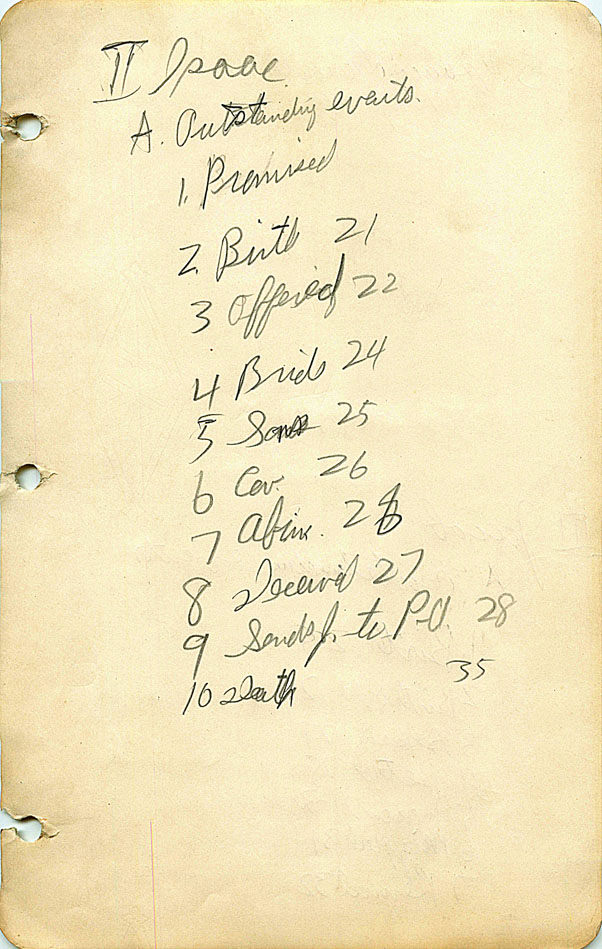 II Isaac
A. Outstanding events.
1. Promised
2. Birth 21
3 Offered 22
4 Bride 24
5 Sons 25
6 Cov. 26
7 Abim. 26
8 Deceived 27
9 Sends J. to P-A. 28
10 Death 35